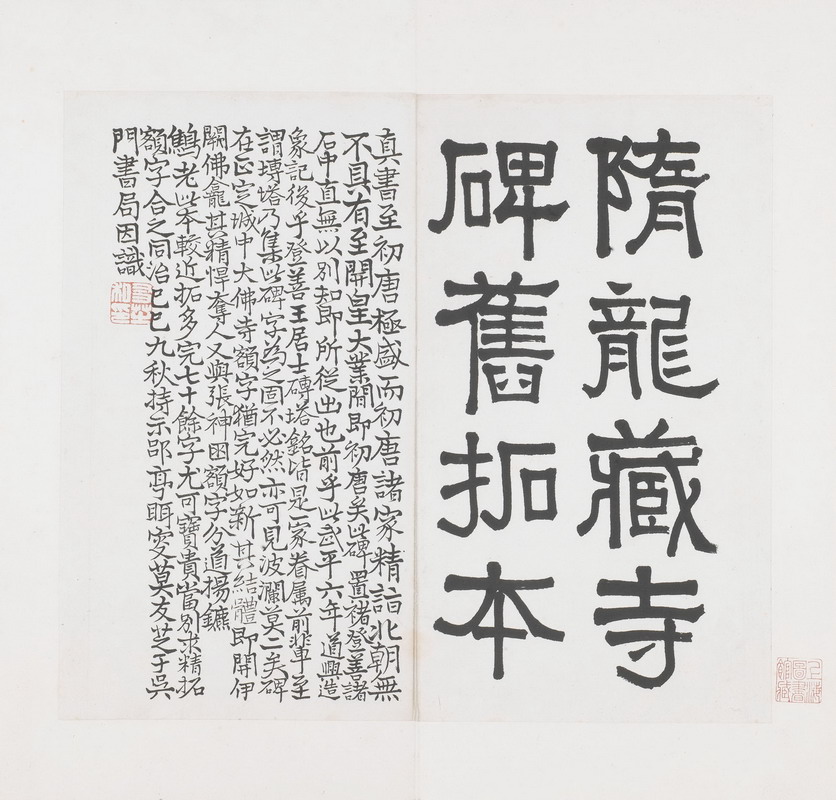 隋龍藏寺
碑舊拓本
真書至初唐極盛而初唐諸家精詣北朝無
不具有至開皇大業間即初唐矣此碑置褚登善諸
石中直無以別知即所從出也前乎此武平六年道興造
象記後乎登善王居士磚塔銘皆是一家眷屬前輩至
謂塼塔乃集此碑字為之固不必然亦可見波瀾莫二矣碑
在正定城中大佛寺額字猶完好如新其結體即開伊
闕佛龕其精悍奪人又與張神囧額字分道揚鑣
老此本較近拓多完七十餘字尤可寶貴當別求精拓
額字合之同治己巳九秋持示郘亭眲叟莫友芝于吳
門書局因識
上海
圖書
館藏